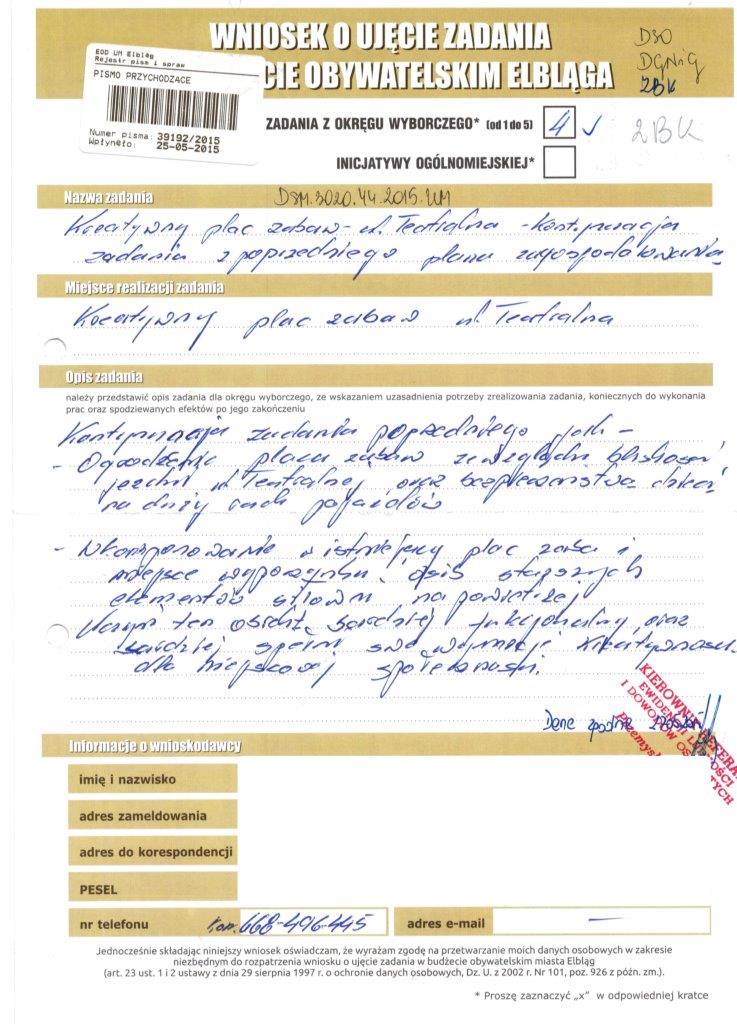 WNIOSEK O UJĘCIE ZADANIA
CIE OBYWATELSKIM ELBLĄGA
DSO
DGNiG
ZBK
EOD UM Elbląg
Rejestr pism i spraw
PISMO PRZYCHODZĄCE
Numer pisma: 39192/2015
Wpłynęło: 25-05-2015
ZADANIA Z OKRĘGU WYBORCZEGO* (od 1 do 5) 4 ✓
ZBK
INICJATYWY OGÓLNOMIEJSKIEJ*
Nazwa zadania
DSM.3020.44.2015.UM
Kreatywny plac zabaw - ul. Teatralna - kontynuacja
zadania z poprzedniego planu zagospodarowania
Miejsce realizacji zadania
Kreatywny plac zabaw ul. Teatralna
Opis zadania
należy przedstawić opis zadania dla okręgu wyborczego, ze wskazaniem uzasadnienia potrzeby zrealizowania zadania, koniecznych do wykonania
prac oraz spodziewanych efektów po jego zakończeniu
Kontynuacja zadania poprzedniego
- Ogrodzenie placu zabaw ze względu bliskości
jezdni ul. Teatralnej oraz bezpieczeństwa dzieci
na duży ruch pojazdów
- Wkomponowanie w istniejący plac zabaw i
miejsce wypoczynku osób starszych
elementów siłowni na powietrzu
ten bardziej funkcjonalny oraz
bardziej spełni
dla miejscowej społeczności.
Dane zgodne
KIEROWNIK REFERA
EWIDENCJI LUDNOŚCI
I DOWODÓW OSOBISTYCH
Przemysł
Informacje o wnioskodawcy
imię i nazwisko
adres zameldowania
adres do korespondencji
PESEL
nr telefonu kom. 668-496-445 adres e-mail —
Jednocześnie składając niniejszy wniosek oświadczam, że wyrażam zgodę na przetwarzanie moich danych osobowych w zakresie
niezbędnym do rozpatrzenia wniosku o ujęcie zadania w budżecie obywatelskim miasta Elbląg
(art. 23 ust. 1 i 2 ustawy z dnia 29 sierpnia 1997 r. o ochronie danych osobowych, Dz. U. z 2002 r. Nr 101, poz. 926 z późn. zm.).
* Proszę zaznaczyć „x” w odpowiedniej kratce